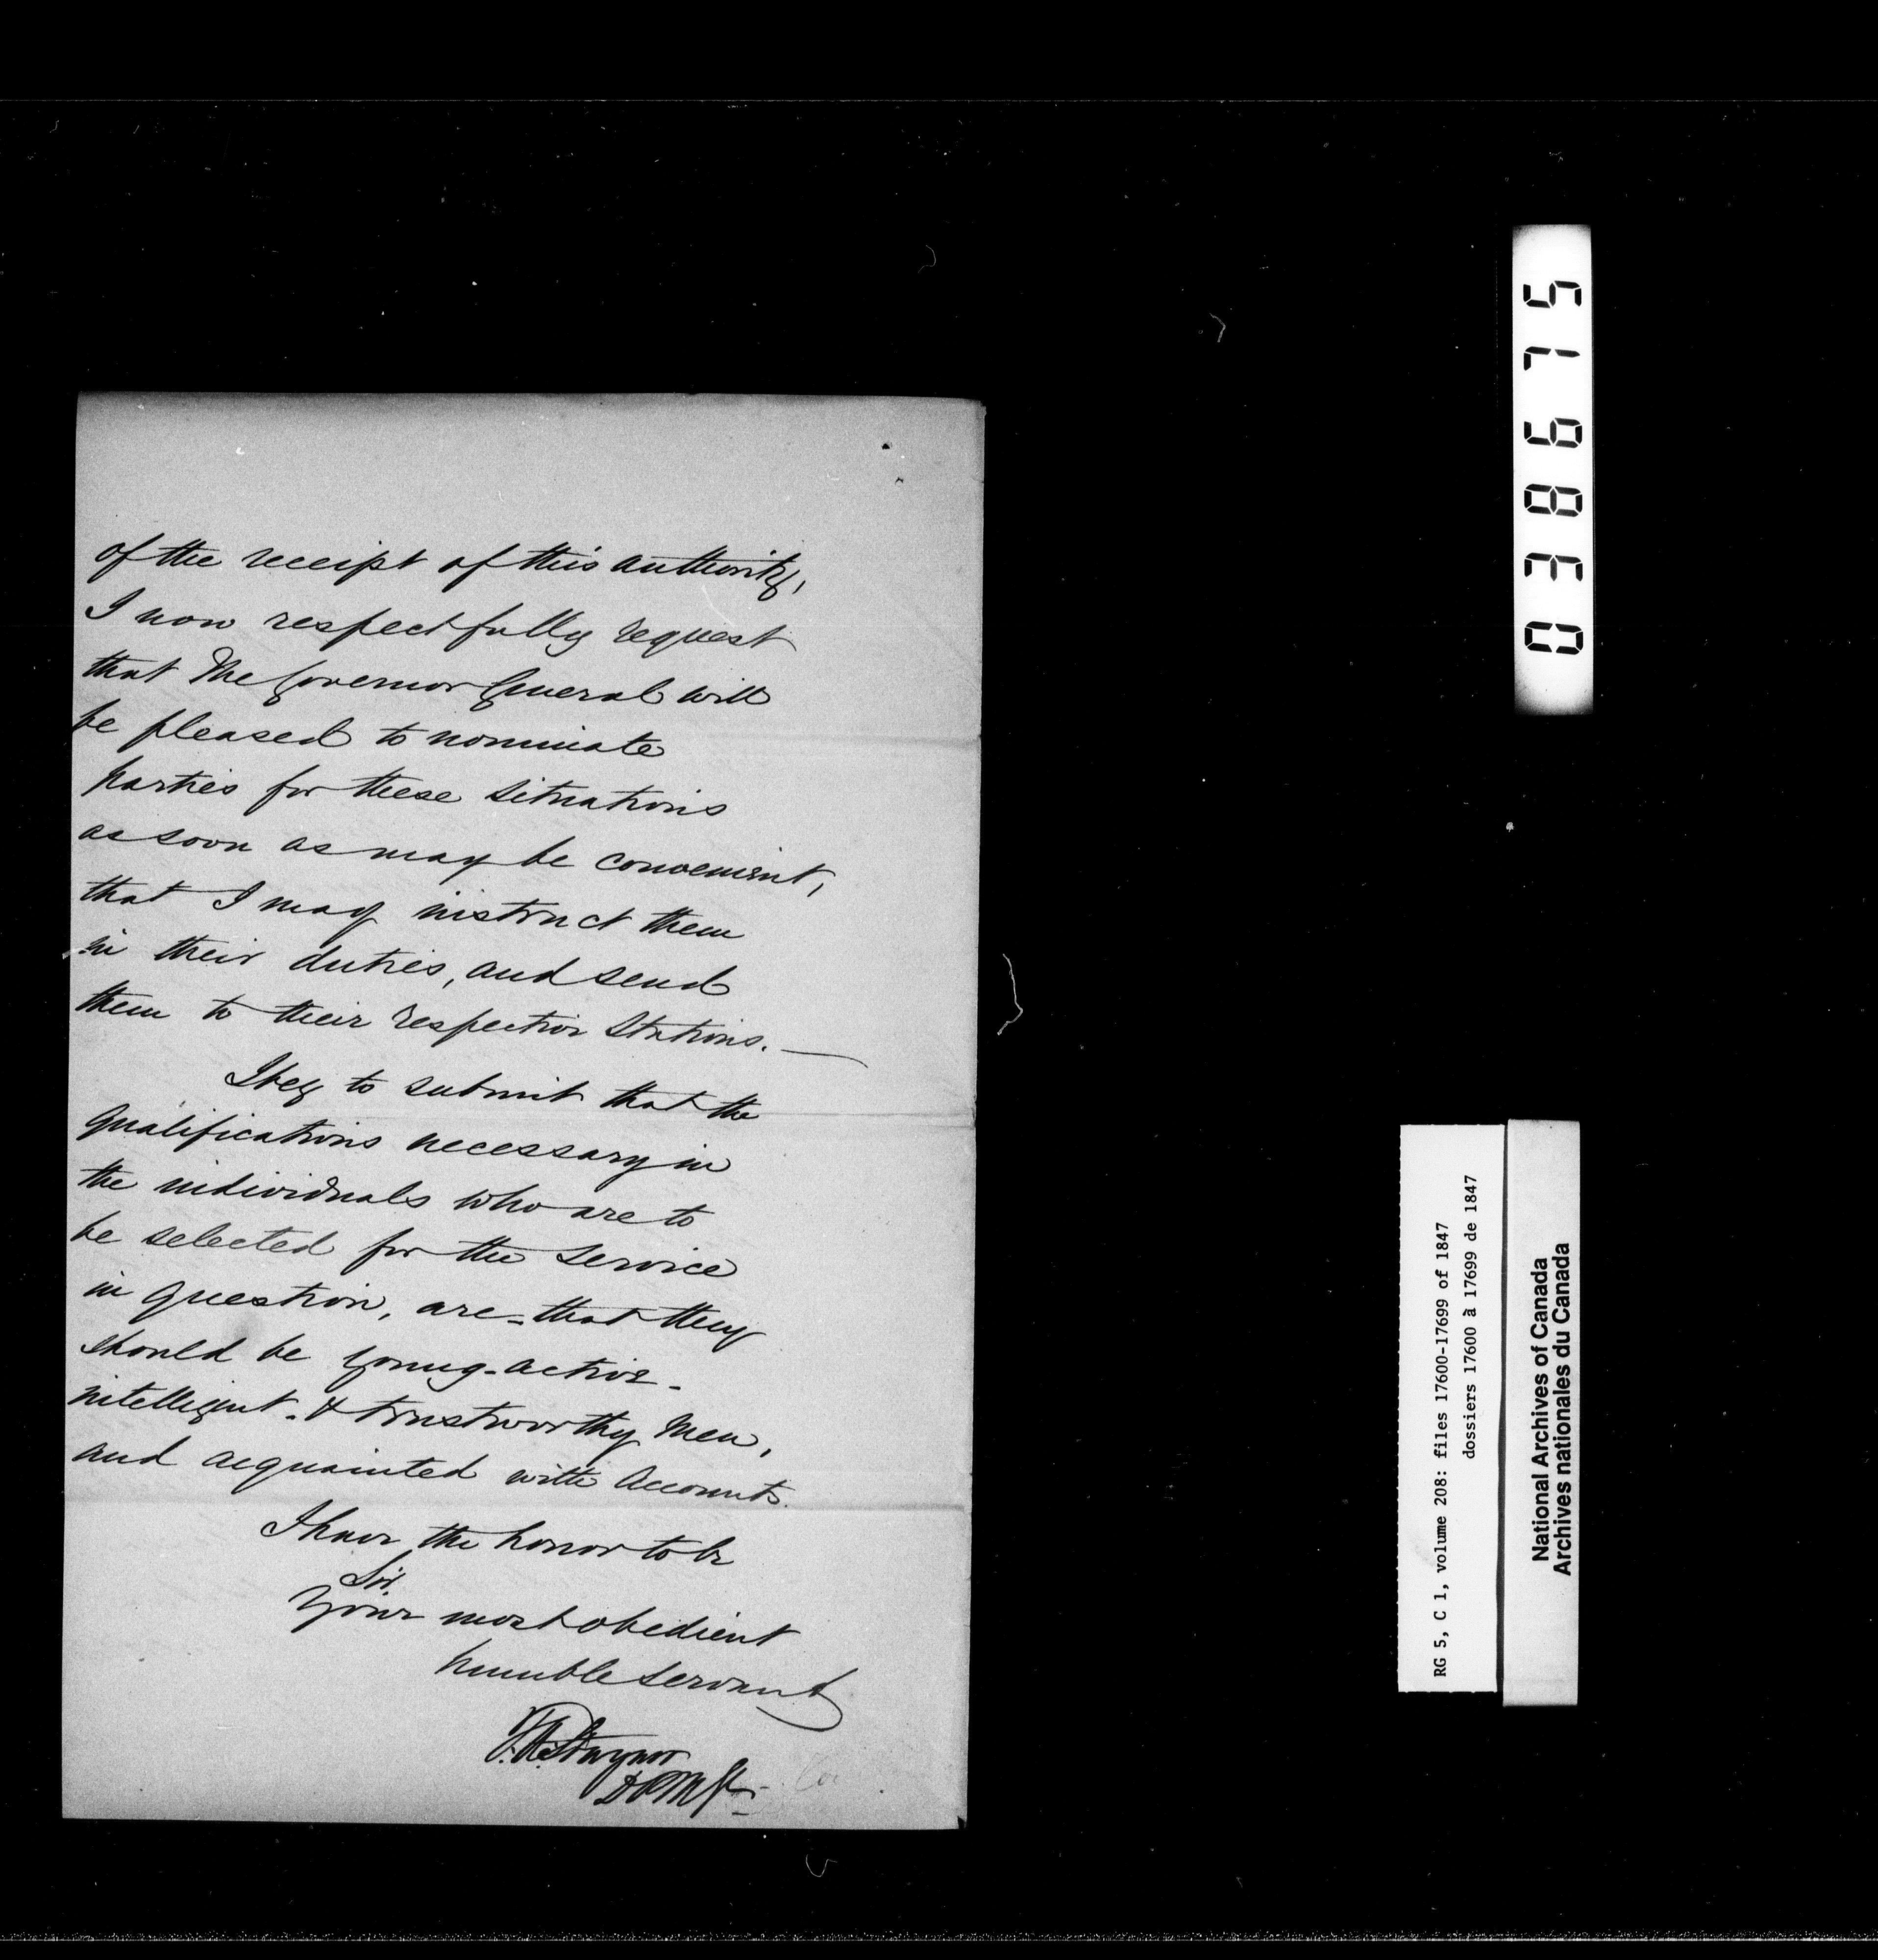 of the receipt of this authority,
I now respectfully request
that The Governor General will
be pleased to nominate
parties for these situations
as soon as may be convenient,
that I may instruct them
in their duties, and send
them to their respective Stations.—
I beg to submit that the
qualifications necessary in
the individuals who are to
be selected for the service
in question, are - that they
should be young - active -
intelligent - & trustworthy Men,
and acquainted with Accounts.
I have the honor to be
Sir,
Your most obedient
humble servant
T.A. Stayner
D P M G
038675
RG 5, C 1, volume 208: files 17600-17699 of 1847
dossiers 17600 à 17699 de 1847
National Archives of Canada
Archives nationales du Canada